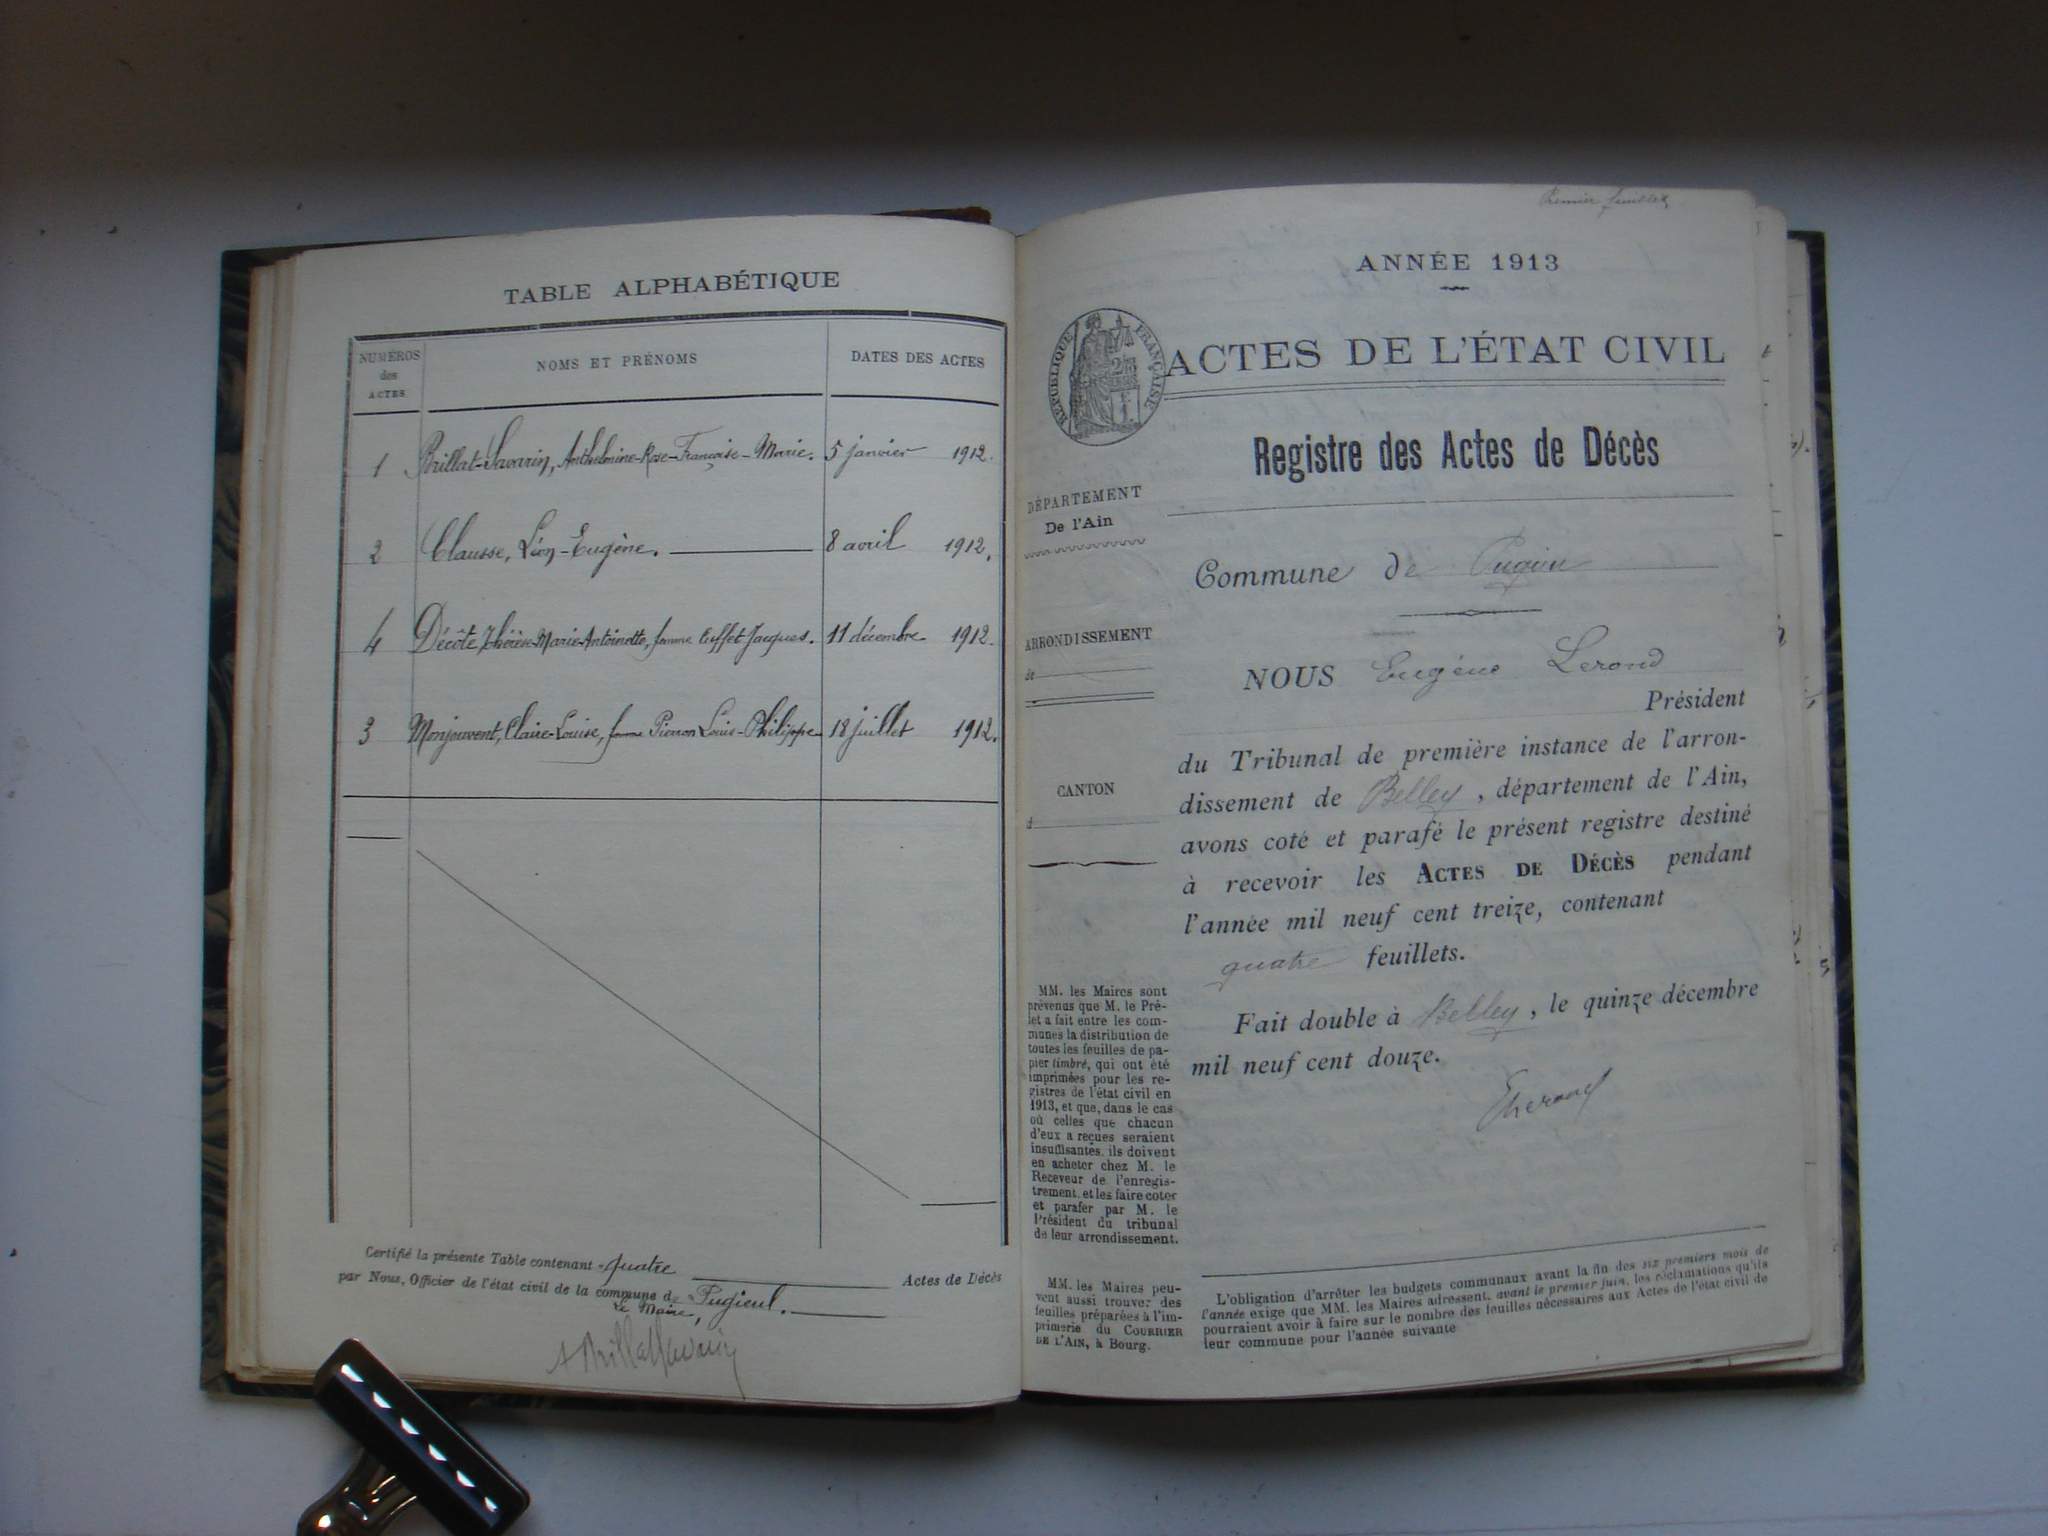 TABLE ALPHABÉTIQUE
NUMÉROS des ACTES NOMS ET PRÉNOMS DATES DES ACTES
1 Brillat-Savarin, Anthelmine-Rose-Françoise-Marie. 5 janvier 1912.
2 Clausse, Léon-Eugène. 8 avril 1912.
4 Décôte Thérèse-Marie-Antoinette, femme Cuffet Jacques. 11 décembre 1912.
3 Monjouvent, Claire-Louise, femme Pierron Louis-Philippe 18 juillet 1912.
Certifié la présente Table contenant quatre Actes de Décès
par Nous, Officier de l'état civil de la commune de Pugieu.
Le Maire,
A Brillat Savarin
Premier feuillet
ANNÉE 1913
RÉPUBLIQUE FRANÇAISE
ACTES DE L'ÉTAT CIVIL
Registre des Actes de Décès
DÉPARTEMENT
De l'Ain
Commune de Pugieu
ARRONDISSEMENT
de
NOUS Eugène Lerond
Président
du Tribunal de première instance de l'arron-
dissement de Belley, département de l'Ain,
avons coté et parafé le présent registre destiné
à recevoir les ACTES DE DÉCÈS pendant
l'année mil neuf cent treize, contenant
quatre feuillets.
Fait double à Belley, le quinze décembre
mil neuf cent douze.
CANTON
d
MM. les Maires sont
prévenus que M. le Pré-
fet a fait entre les com-
munes la distribution de
toutes les feuilles de pa-
pier timbré, qui ont été
imprimées pour les re-
gistres de l'état civil en
1913, et que, dans le cas
où celles que chacun
d'eux a reçues seraient
insuffisantes, ils doivent
en acheter chez M. le
Receveur de l'enregis-
trement, et les faire coter
et parafer par M. le
Président du tribunal
de leur arrondissement.
MM. les Maires peu-
vent aussi trouver des
feuilles préparées à l'im-
primerie du COURRIER
DE L'AIN, à Bourg.
L'obligation d'arrêter les budgets communaux avant la fin des six premiers mois de
l'année exige que MM. les Maires adressent, avant le premier juin, les réclamations qu'ils
pourraient avoir à faire sur le nombre des feuilles nécessaires aux Actes de l'état civil de
leur commune pour l'année suivante